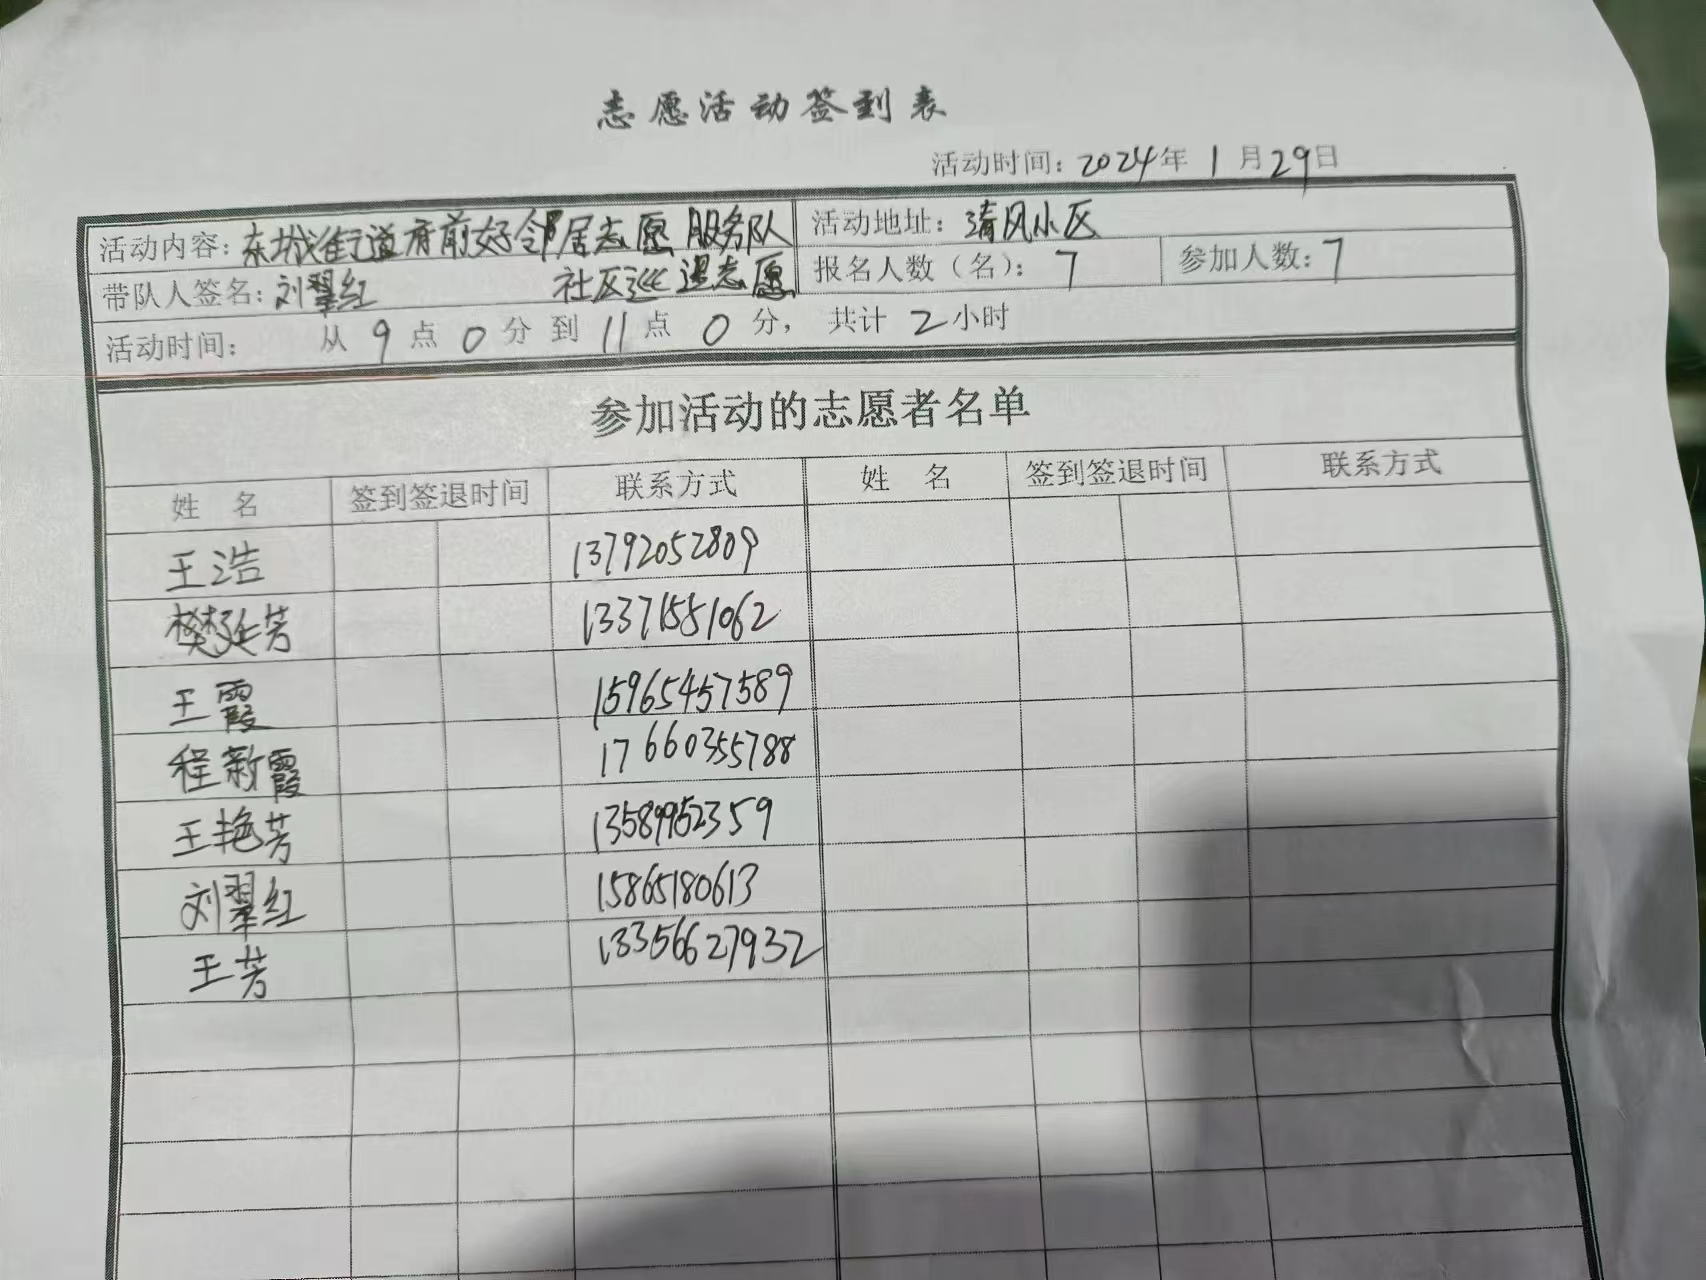 志愿活动签到表
活动时间：2024年 1月29日
活动内容：东城街道府前好邻居志愿服务队 活动地址：清风小区
社区巡逻志愿
带队人签名：刘翠红 报名人数（名）：7 参加人数：7
活动时间： 从9点0分到11点0分， 共计2小时
参加活动的志愿者名单
姓 名 签到签退时间 联系方式 姓 名 签到签退时间 联系方式
王浩 13792052809
樊延芳 13371551062
王霞 15965457589
程新霞 17660355788
王艳芳 13589952359
刘翠红 15865180613
王芳 13356627932